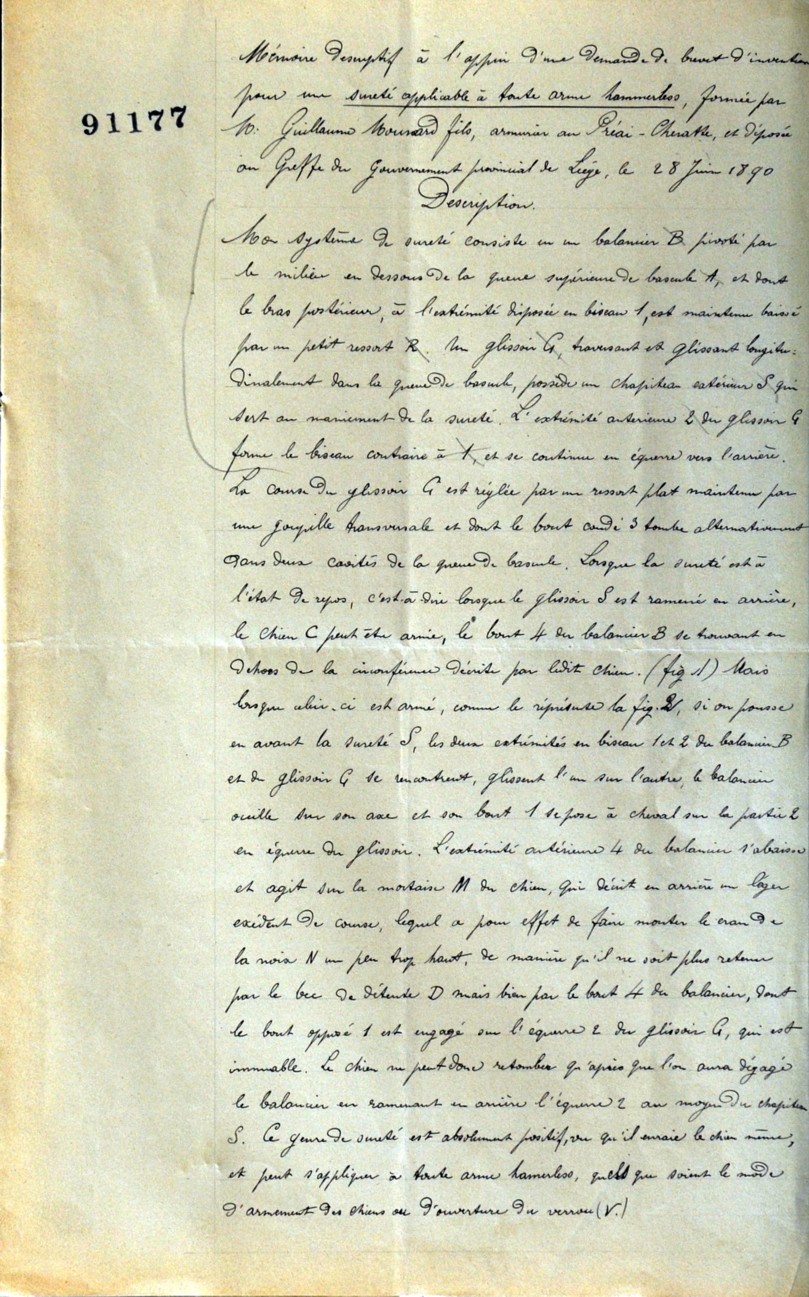 Mémoire descriptif à l'appui d'une demande de brevet d'invention
91177
pour une sureté applicable à toute arme hammerless, formée par
M. Guillaume Mousard fils, armurier au Préai-Cheratte, et déposée
au Greffe du Gouvernement provincial de Liége, le 28 Juin 1890
Description.
Mon système de sureté consiste en un balancier B pivoté par
le milieu en dessous de la queue supérieure de bascule A, et dont
le bras postérieur, à l'extrémité disposée en biseau 1, est maintenu baissé
par un petit ressort R. Un glissoir G, traversant et glissant longitu-
dinalement dans la queue de bascule, possède un chapiteau extérieur S qui
sert au maniement de la sureté. L'extrémité anterieure 2 du glissoir G
forme le biseau contraire à 1, et se continue en équerre vers l'arrière.
La course du glissoir G est réglée par un ressort plat maintenu par
une goupille transversale et dont le bout coudé 3 tombe alternativement
dans deux cavités de la queue de bascule. Lorsque la sureté est à
l'état de repos, c'est-à-dire lorsque le glissoir S est ramené en arrière,
le chien C peut être armé, le bout 4 du balancier B se trouvant en
dehors de la circonférence décrite par ledit chien. (fig 1) Mais
lorsque celui-ci est armé, comme le répresente la fig. 2, si on pousse
en avant la sureté S, les deux extrémités en biseau 1 et 2 du balancier B
et du glissoir G se rencontrent, glissent l'un sur l'autre, le balancier
oscille sur son axe et son bout 1 se pose à cheval sur la partie 2
en équerre du glissoir. L'extrémité antérieure 4 du balancier s'abaisse
et agit sur la mortaise M du chien, qui décrit en arrière un léger
exédent de course, lequel a pour effet de faire monter le cran de
la noix N un peu trop haut, de manière qu'il ne soit plus retenu
par le bec de détente D mais bien par le bout 4 du balancier, dont
le bout opposé 1 est engagé sur l'équerre 2 du glissoir G, qui est
immuable. Le chien ne peut donc retomber qu'après que l'on aura dégagé
le balancier en ramenant en arrière l'équerre 2 au moyen du chapiteau
S. Ce genre de sureté est absolument positif, vu qu'il enraie le chien même,
et peut s'appliquer à toute arme hamerless, quels que soient le mode
d'armement des chiens ou d'ouverture du verrou (V.)